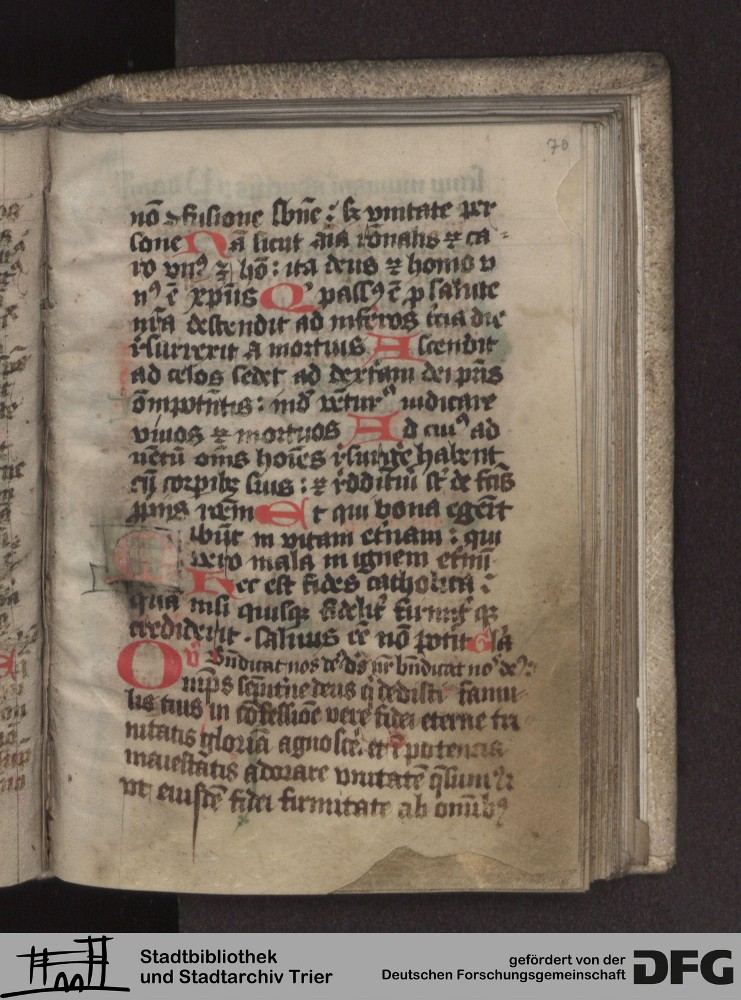 70
nō ꝯfusione sbn̄e : sꝫ vnitate per
sone Nā sicut aīa rōnalis ⁊ ca-
ro vnꝰ ē hō : ita deus ⁊ homo v
nꝰ ē xp̄us Qͥ passꝰ ē ꝓ salute
nr̄a descendit ad inferos tcia die
rͤsurrexit a mortuis Ascendit
ad celos sedet ad dexteram dei pr̄is
ōmpotn̄tis : īnd vētur iudicare
viuos ⁊ mortuos Ad cuiꝰ ad
uētū om̄s hoīes rͤsurgͤe habent
cū corpibꝫ suis : ⁊ rͤddituri st̄ de
rōnem Et qui bona egert
ibūt in vitam etnam : qui
vero mala in ignem etnū
Hec est fides catholica :
quā nisi quisqꝫ fidelit̄ firmit̄ qꝫ
crediderit . saluus eē nō potit Gl̄a
bn̄dicat nos
Om̄ps semp̄itn̄e deus qͥ dedisti famu
lis tuis in cōfessiōe vere fidei eterne tri
nitatis gloriā agnosce et ī potencia
maiestatis adorare vnitatē qs̄umꝰ
vt eiusdē fidei firmitate ab omībꝰ
Stadtbibliothek
und Stadtarchiv Trier
gefördert von der
Deutschen Forschungsgemeinschaft
DFG